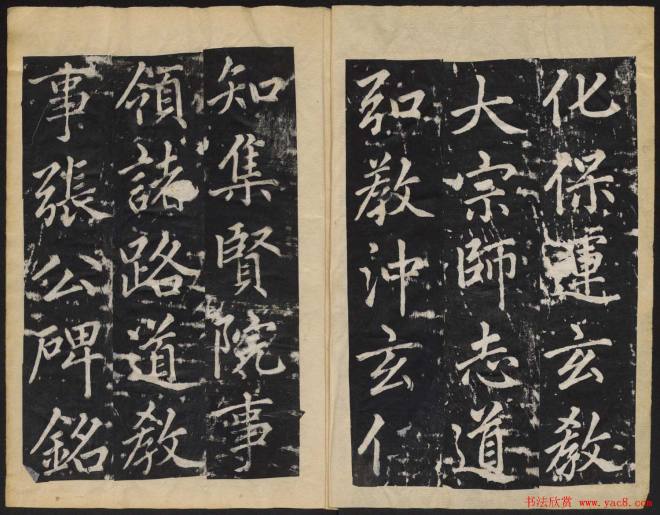 化保運玄教
大宗師志道
弘教沖玄仁
知集賢院事
領諸路道教
事張公碑銘
书法欣赏 www.yac8.com